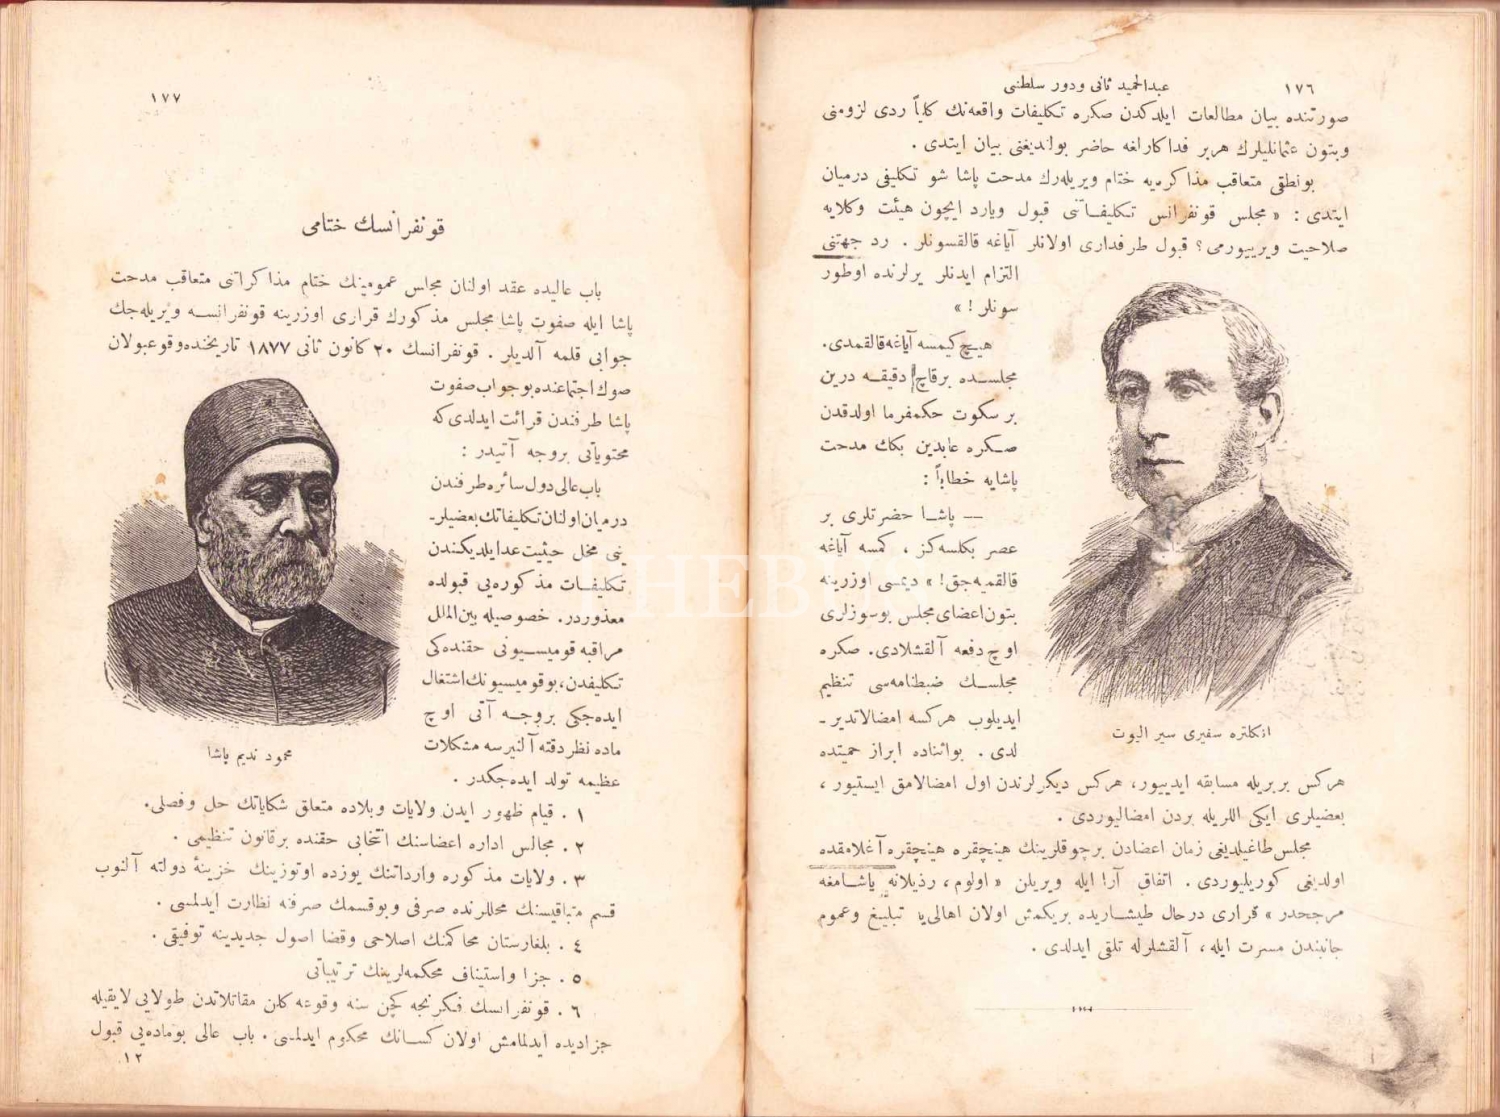 ١٧٦
عبدالحميد ثانى ودور سلطنتى
صورتنده بيان مطالعات ايلدكدن صكره تكليفات واقعه‌نك كلياً ردى لزومنى
وبتون عثمانليلرك هربر فداكارلغه حاضر بولنديغنى بيان ايتدى .
بونطقى متعاقب مذاكره‌يه ختام ويريله‌رك مدحت پاشا شو تكليفى درميان
ايتدى : « مجلس قونفرانس تكليفاتنى قبول ويارد ايچون هيئت وكلايه
صلاحيت ويرييورمى ؟ قبول طرفدارى اولانلر آياغه قالقسونلر . رد جهتنى
التزام ايدنلر يرلرنده اوطور
سونلر ! »
هيچ كيمسه آياغه قالقمدى.
مجلسده برقاچ دقيقه درين
بر سكوت حكمفرما اولدقدن
صكره عابدين بكك مدحت
پاشايه خطاباً :
— پاشا حضرتلرى بر
عصر بكلسه‌كز ، كمسه آياغه
قالقميه‌جق! » ديمسى اوزرينه
بتون اعضاى مجلس بوسوزلرى
اوچ دفعه آلقشلادى. صكره
مجلسك ضبطنامه‌سى تنظيم
ايديلوب هركسه امضالاتدير-
لدى . بواثناده ابراز حميتده
انكلتره سفيرى سير اليوت
هركس بربريله مسابقه ايدييور، هركس ديكرلرندن اول امضالامق ايستيور ،
بعضيلرى ايكى اللريله بردن امضاليوردى .
مجلس طاغيلديغى زمان اعضادن برچوقلرينك هينچقره هينچقره آغلامقده
اولديغى كوريليوردى . اتفاق آرا ايله ويريلن « اولوم ، رذيلانه ياشامغه
مرجحدر » قرارى درحال طيشاريده بريكمش اولان اهالى‌يا تبليغ وعموم
جانبندن مسرت ايله ، آلقشلرله تلقى ايدلدى .
١٧٧
قونفرانسك ختامى
باب عاليده عقد اولنان مجلس عمومينك ختام مذاكراتنى متعاقب مدحت
پاشا ايله صفوت پاشا مجلس مذكورك قرارى اوزرينه قونفرانسه ويريله‌جك
جوابى قلمه آلديلر . قونفرانسك ٢٠ كانون ثانى ١٨٧٧ تاريخنده وقوعبولان
صوك اجتماعنده بوجواب صفوت
پاشا طرفندن قرائت ايدلدى كه
محتوياتى بروجه آتيدر :
باب عالى دول سائره طرفندن
درميان اولنان تكليفاتك بعضيلر-
ينى مخل حيثيت عد ايلديكندن
تكليفات مذكوره‌يى قبولده
معذوردر. خصوصيله بين‌الملل
مراقبه قوميسيونى حقنده‌كى
تكليفدن، بوقوميسيونك اشتغال
ايده‌جكى بروجه آتى اوچ
ماده نظر دقته آلنيرسه مشكلات
عظيمه تولد ايده‌جكدر .
محمود نديم پاشا
١ . قيام ظهور ايدن ولايات وبلاده متعلق شكاياتك حل وفصلى.
٢ . مجالس اداره اعضاسنك انتخابى حقنده برقانون تنظيمى .
٣ . ولايات مذكوره وارداتنك يوزده اوتوزينك خزينهٔ دولته آلنوب
قسم متباقيسنك محللرنده صرفى وبوقسمك صرفنه نظارت ايدلمسى .
٤ . بلغارستان محاكمنك اصلاحى وقضا اصول جديدينه توفيقى .
٥ . جزا واستيناف محكمه‌لرينك ترتيباتى
٦ . قونفرانسك فكرنجه كچن سنه وقوعه كلن مقاتلاتدن طولايى لايقيله
جزاديده ايدلمامش اولان كسانك محكوم ايدلمسى . باب عالى بوماده‌يى قبول
١٢
THEBUS